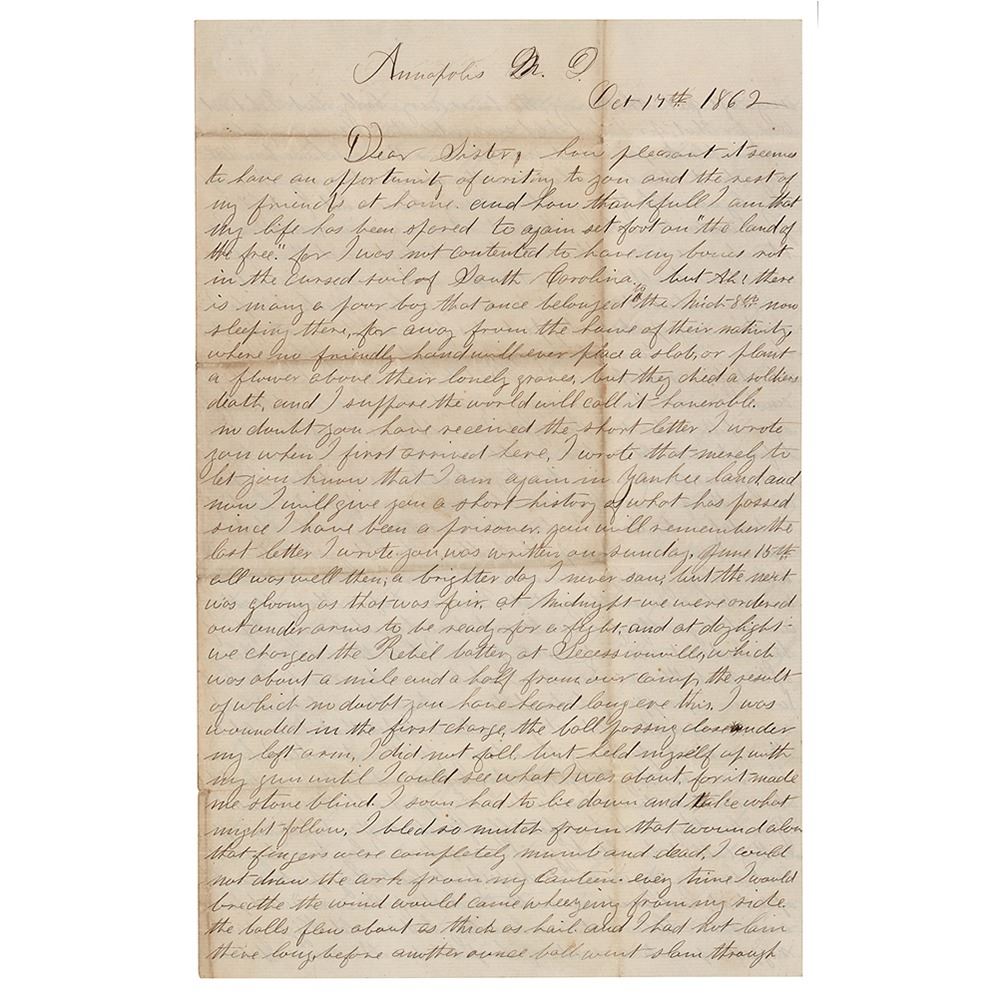 Annapolis M. D.
Oct 17th 1862
Dear Sister, how pleasant it seems
to have an opportunity of writing to you and the rest of
my friends at home. and how thankfull I am that
my life has been spared to again set foot on "the land of
the free." for I was not contented to have my bones rot
in the cursed soil of South Carolina. but Ah! there
is many a poor boy that once belonged to the Mich 8th now
sleeping there, far away from the home of their nativity,
where no friendly hand will ever place a slab, or plant
a flower above their lonely graves, but they died a soldiers
death, and I suppose the world will call it honerable.
no doubt you have received the short letter I wrote
you when I first arrived here, I wrote that merely to
let you know that I am again in Yankee land, and
now I will give you a short history of what has passed
since I have been a prisoner. you will remember the
last letter I wrote you was written on sunday, June 15th
all was well then, a brighter day I never saw, but the next
was gloomy as that was fair. at midnight we were ordered
out under arms to be ready for a fight, and at daylight
we charged the Rebel battery at Secessionville, which
was about a mile and a half from our camp, the result
of which no doubt you have heared long ere this, I was
wounded in the first charge, the ball passing close under
my left arm, I did not fall but held myself up with
my gun until I could see what I was about, for it made
me stone blind. I soon had to lie down and take what
might follow, I bled so mutch from that wound alon
that fingers were completely numb and dead, I could
not draw the cork from my Canteen. every time I would
breathe the wind would came wheezeing from my side
the balls flew about as thick as hail. and I had not lain
there long, before another ounce ball went slam through